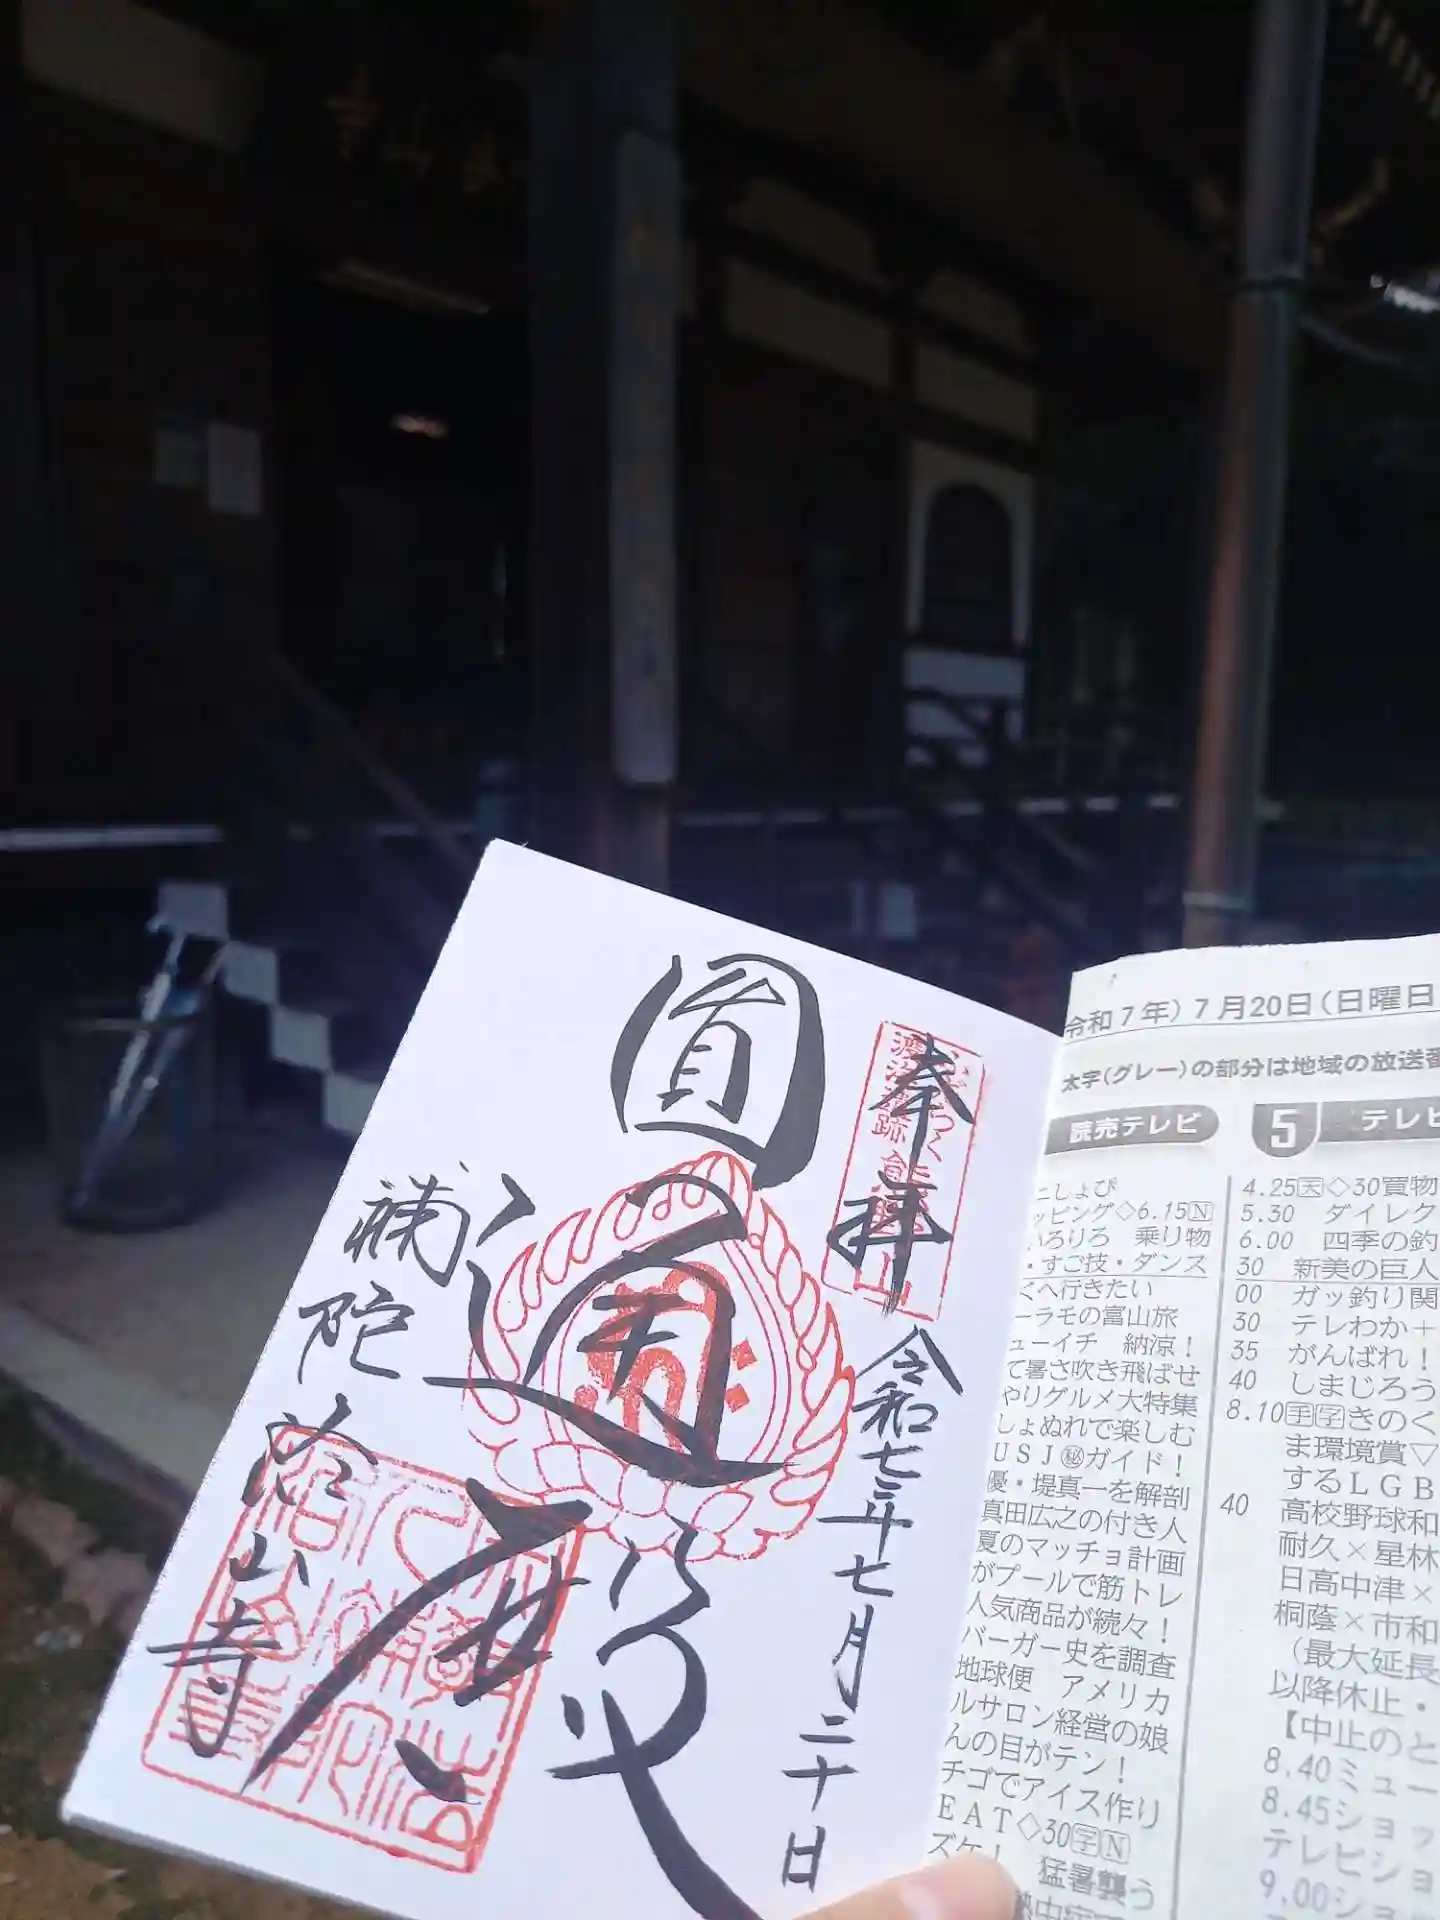 奉拝
令和七年七月二十日
圓通殿
補陀洛山寺
令和7年)7月20日(日曜日
太字(グレー)の部分は地域の放送番
読売テレビ
こしょぴ
ッピング◇6.15N
いろりろ 乗り物
・すご技・ダンス
くへ行きたい
ーラモの富山旅
ューイチ 納涼!
て暑さ吹き飛ばせ
やりグルメ大特集
しょぬれで楽しむ
USJ㊙ガイド!
優・堤真一を解剖
真田広之の付き人
夏のマッチョ計画
がプールで筋トレ
人気商品が続々!
バーガー史を調査
地球便 アメリカ
ルサロン経営の娘
んの目がテン!
チゴでアイス作り
EAT◇30字N
ズケ!
猛暑襲う
5 テレビ
4.25天◇30買物
5.30 ダイレク
6.00 四季の釣
30 新美の巨人
00 ガッ釣り関
30 テレわか+
35 がんばれ!
40 しまじろう
8.10手字きのく
ま環境賞▽
するLGB
40 高校野球和
耐久×星林
日高中津×
桐蔭×市和
(最大延長
以降休止・
【中止のと
8.40ミュー
8.45ショッ
テレビショ
9.00ショ